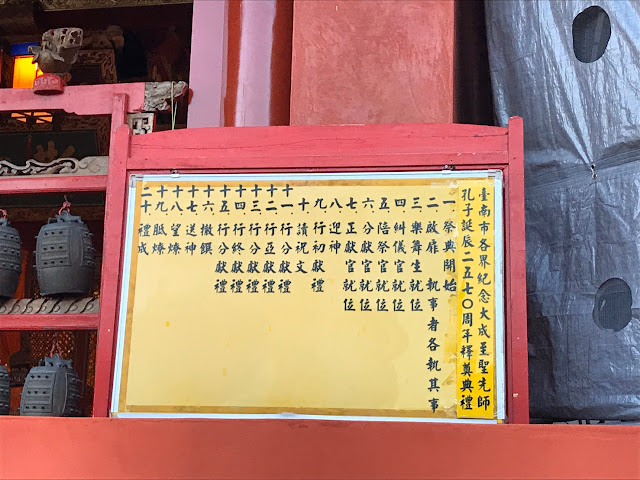 臺南市各界紀念大成至聖先師
孔子誕辰二五七〇周年釋奠典禮
一.祭典開始
二.啟扉 執事者各執其事
三.樂舞生就位
四.糾儀官就位
五.陪祭官就位
六.分獻官就位
七.正獻官就位
八.迎神
九.行初獻禮
十.讀祝文
十一.行分獻禮
十二.行亞獻禮
十三.行分獻禮
十四.行終獻禮
十五.行分獻禮
十六.撤饌
十七.送神
十八.望燎
十九.眂燎
二十.禮成